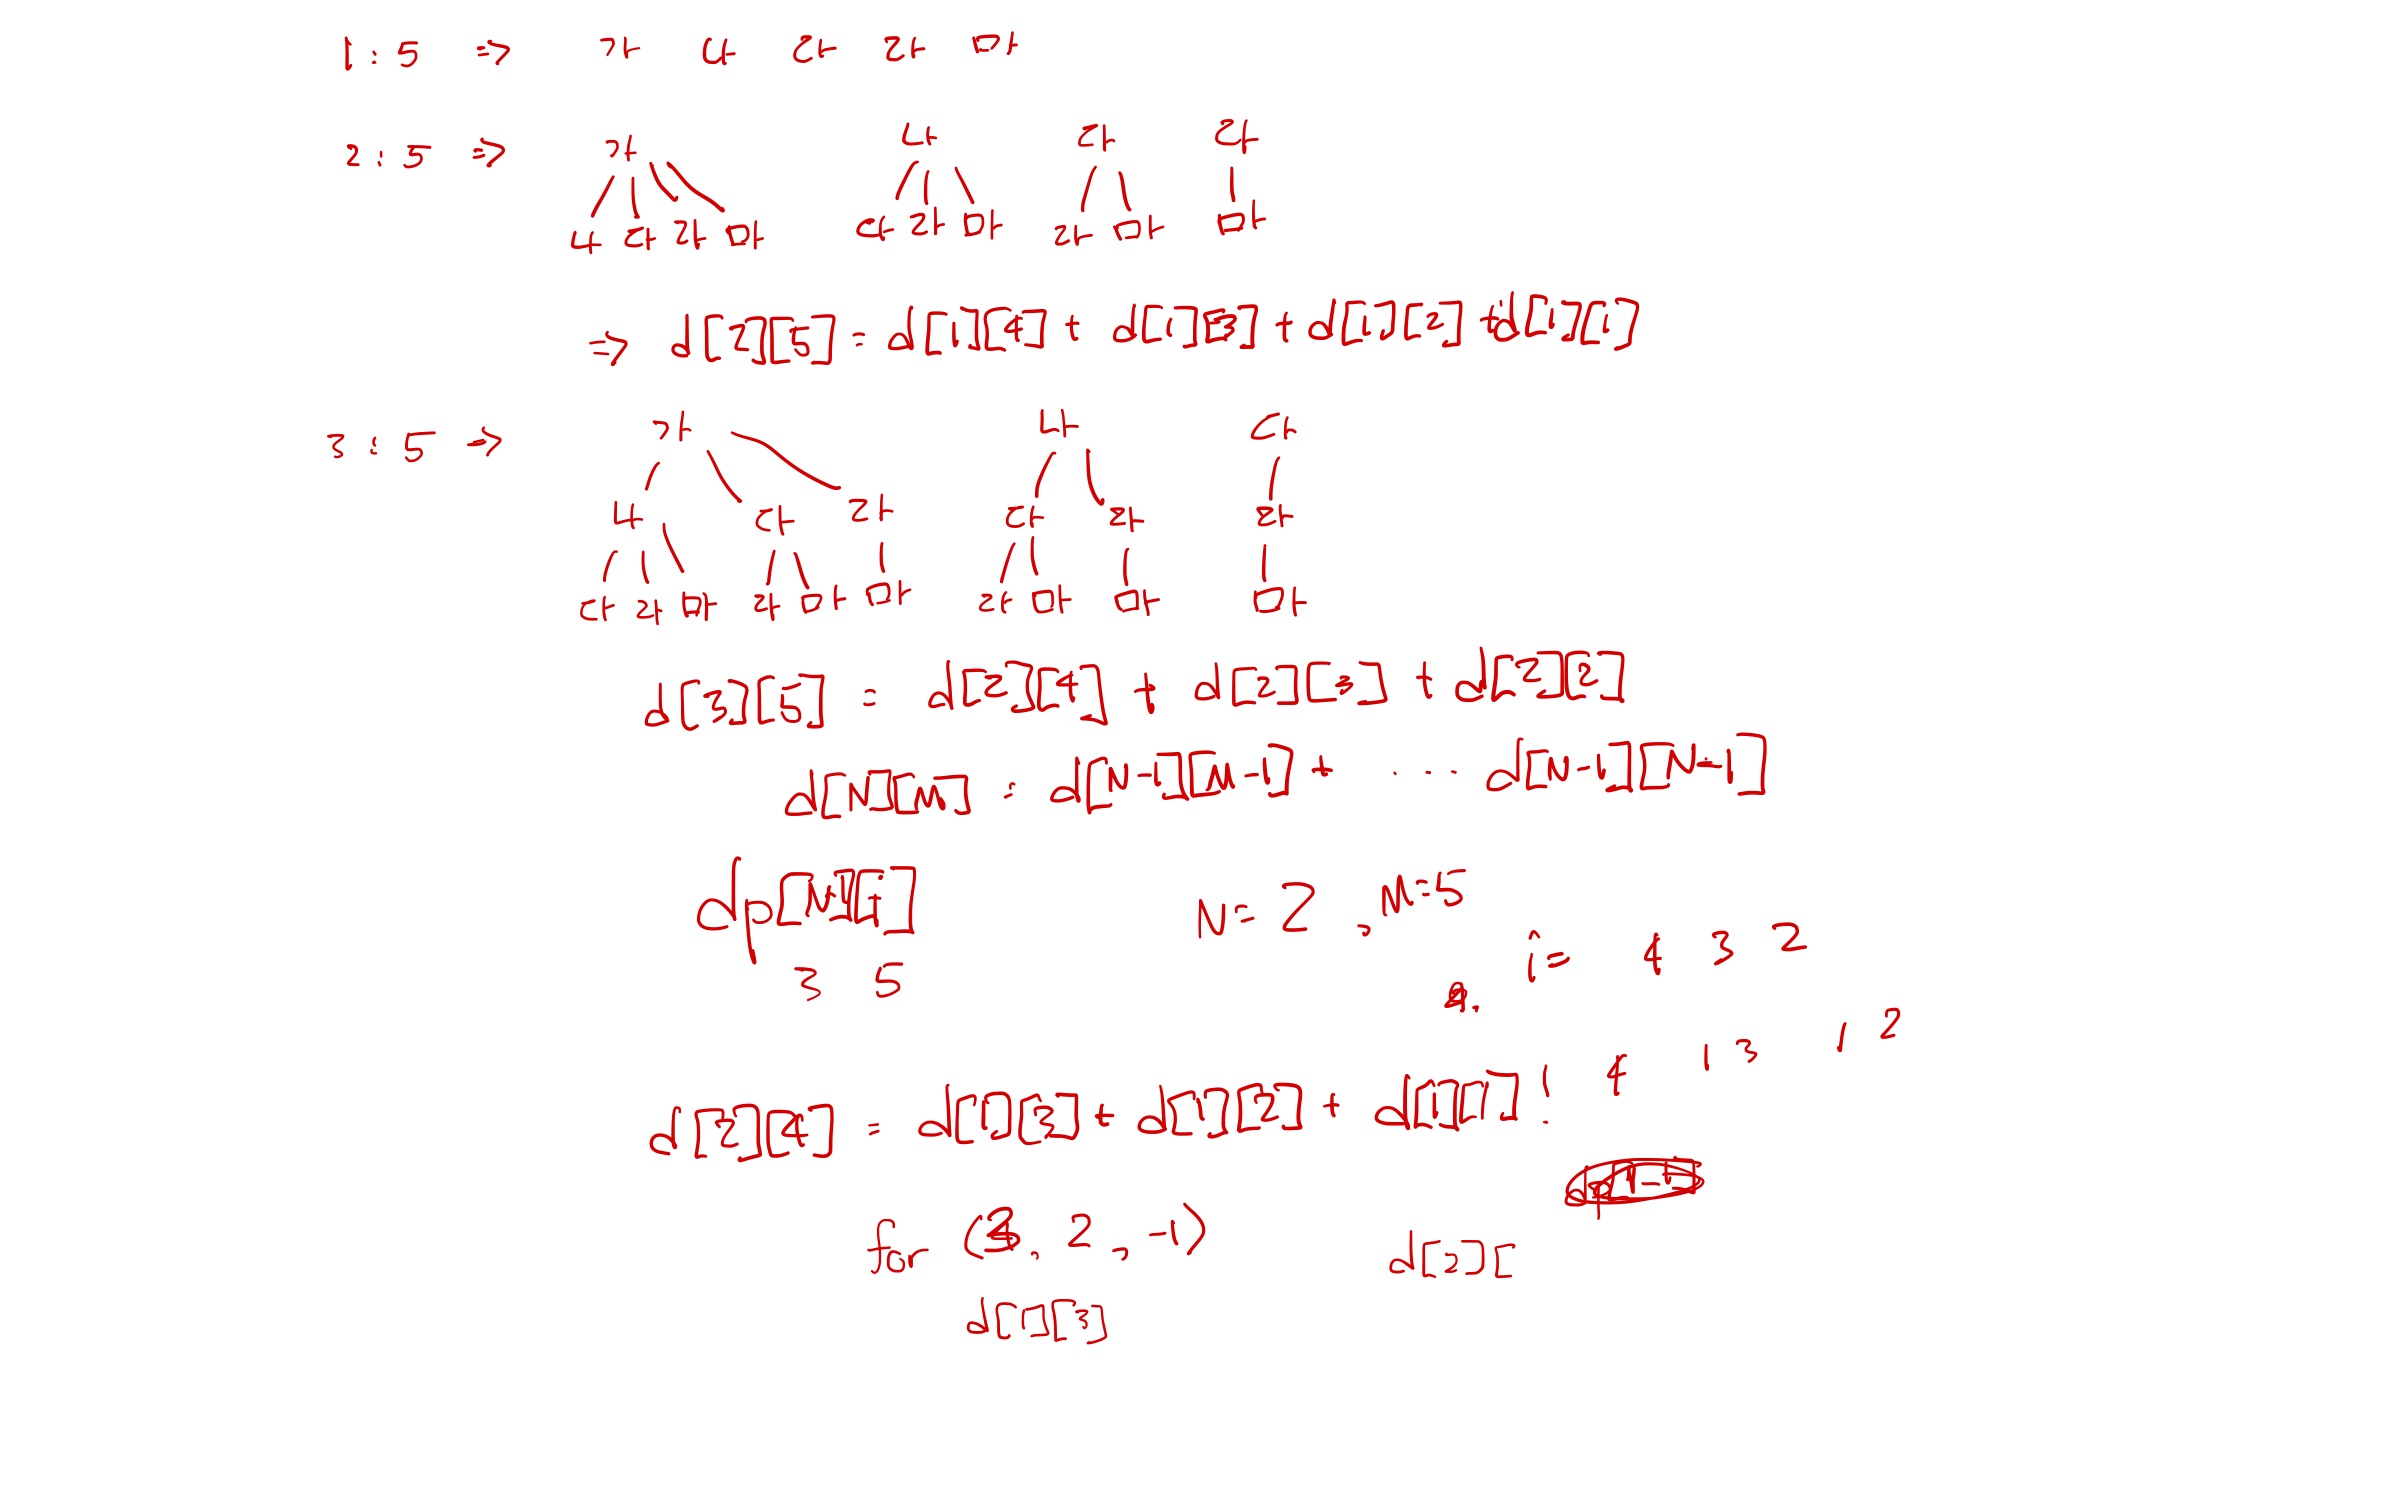 1 : 5 => 가 나 다 라 마
2 : 5 => 가 나 다 라
나 다 라 마 다 라 마 라 마 마
=> d[2][5] = d[1][4] + d[1][3] + d[1][2] + d[1][1]
3 : 5 => 가 나 다
나 다 라 다 라 라
다 라 마 라 마 마 라 마 마 마
d[3][5] = d[2][4] + d[2][3] + d[2][2]
d[N][M] = d[N-1][M-1] + ... d[N-1][N-1]
N=2, M=5
3 5
i= 4 3 2
4 1 3 1 2
d[2][4] = d[1][3] + d[1][2] + d[1][1] !
for ( , 2, -1) d[2][
d[1][3]